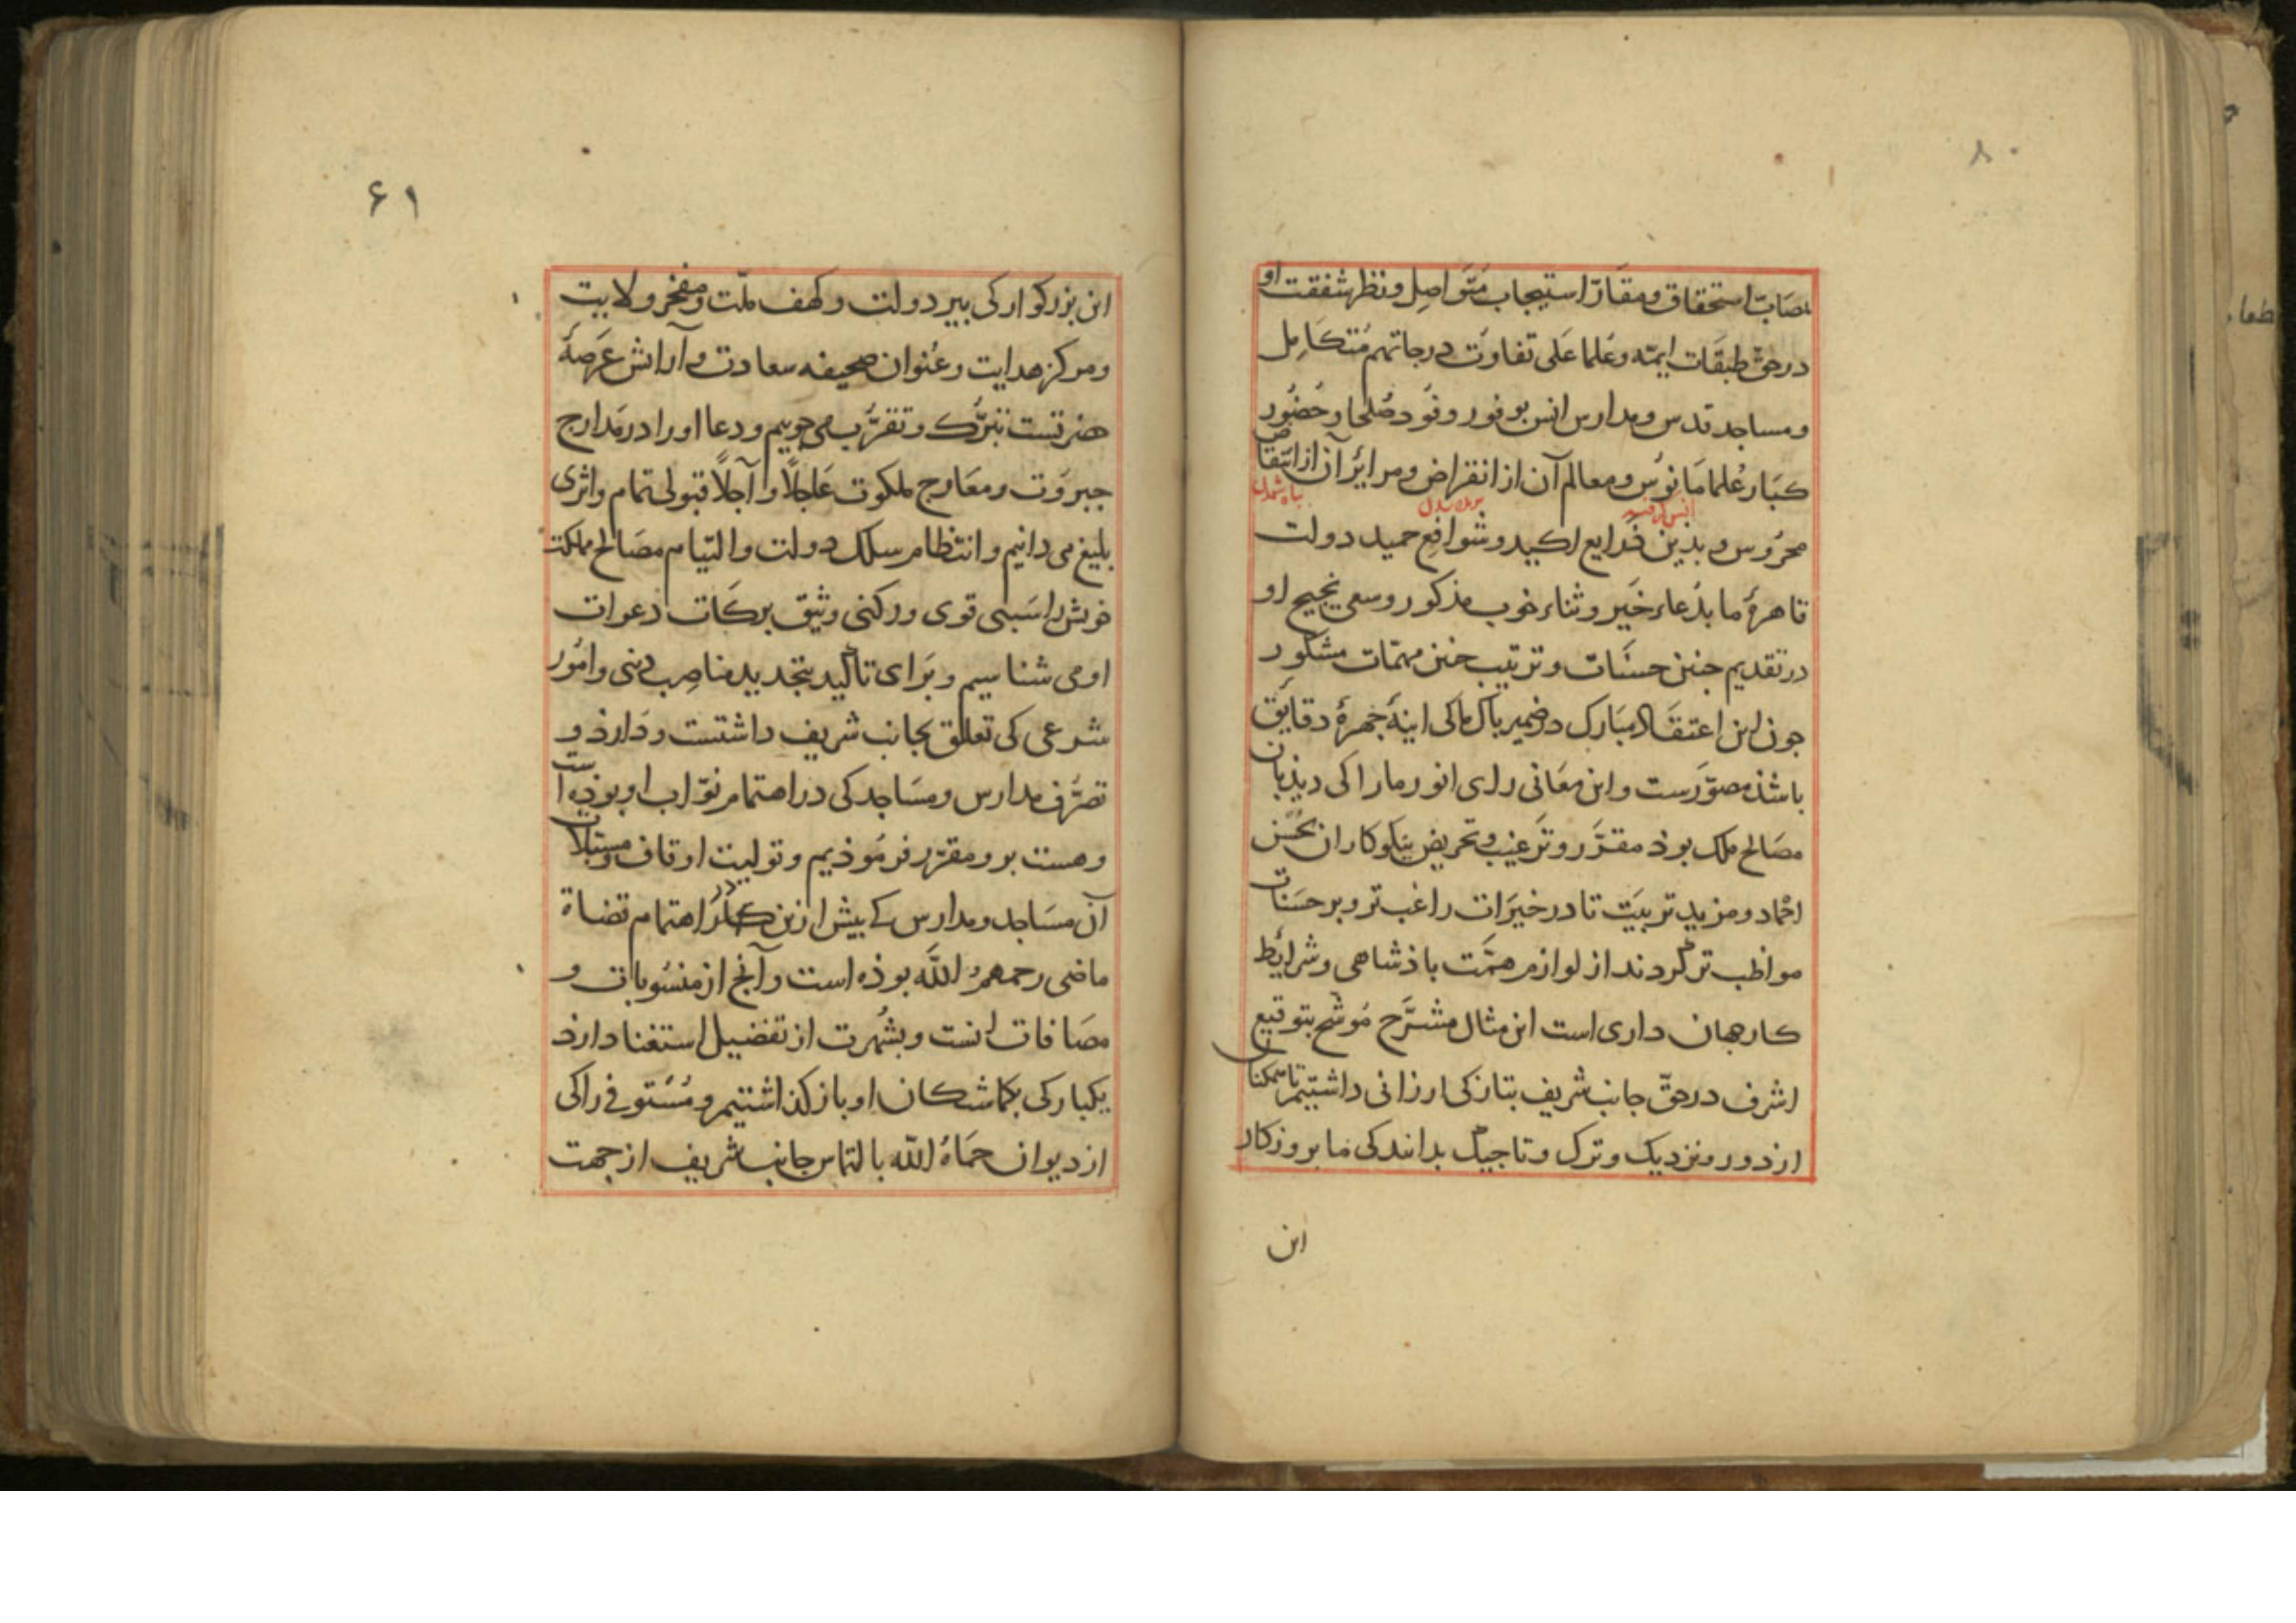 بمصابّ استحقاق ومقارّ استیجاب متواصل ونظر شفقت او
درحقّ طبقات ایمّه وعُلما عَلی تفاوُت درجاتهم مُتکامِل
ومساجد قدس ومدارس انس بوفور وفُود صُلحا وحُضُور
کبَار عُلما مَانوُس ومعالم آن از انقراض ومرایر آن از انتقاض
محرُوس وبدین ذَرایع اکید وشَوافِع حمید دولت
قاهرهٔ ما بدُعاء خَیر وثناء خوب مذکور وسعی نجیح او
در تقدیم جنین حسنَات وترتیب جنین مهمّات مشکور
جون این اعتقاد مبارک در ضمیر باک ما کی اینهٔ جهرهٔ دقایق
باشذ مصوّرست واین معَانی رای انور ما را کی دیذبان
مصَالح ملک بوذ مقرَّر وترغیب وتحریض نیکوکاران بحُسن
احماد ومزید تربیَت تا در خیرَات راغب‌تر وبر حسَنات
مواظب‌تر کردند از لوازم همَّت باذشاهی وشرایط
کار جهان داری است این مثال مشرَّح مُوشّح بتوقیع
اشرف درحقّ جانب شریف بتازکی ارزانی داشتیم تا همکنان
از دور ونزدیک وترک وتاجیک بدانند کی ما بروزکار
این
۶۱
این بزرکوار کی بیر دولت وکهف ملّت ومفخر ولایت
ومرکز هدایت وعُنوان صحیفه سعادت وآرایش عَرصهٔ
هنرتست تبرُّک وتقرُّب می‌جوییم ودعا اورا در مَدارج
جبروَت ومعَارج ملکوت عَاجلًا وآجلًا قبولی تمام واثری
بلیغ می دانیم وانتظام سلک دولت والتیام مصَالح مملکت
خویش را سَببی قوی ورکنی وثیق برکَات دعوات
او می شناسیم وبَرای تاکید بتجدید مناصِب دینی وامُور
شرعی کی تعلّق بجانب شریف داشتست ودَارذ و
تصرُّف مدارس ومسَاجد کی در اهتمام نوّاب او بوذه است
وهست برو مقرّر فرمُوذیم وتولیت اوقاف ومسبَلات
آن مسَاجد ومدارس کے بیش ازین در اهتمام قضاة
ماضی رحمهمُ اللّه بوذه است وآنج از منسُوبات و
مضَافات انست وبشُهرت از تفضیل استغنا دارذ
یکبارکی بکماشتکان او باز کذاشتیم ومُستوفی را کی
از دیوان حمَاهُ اللّه بالتماس جانب شریف از جهت